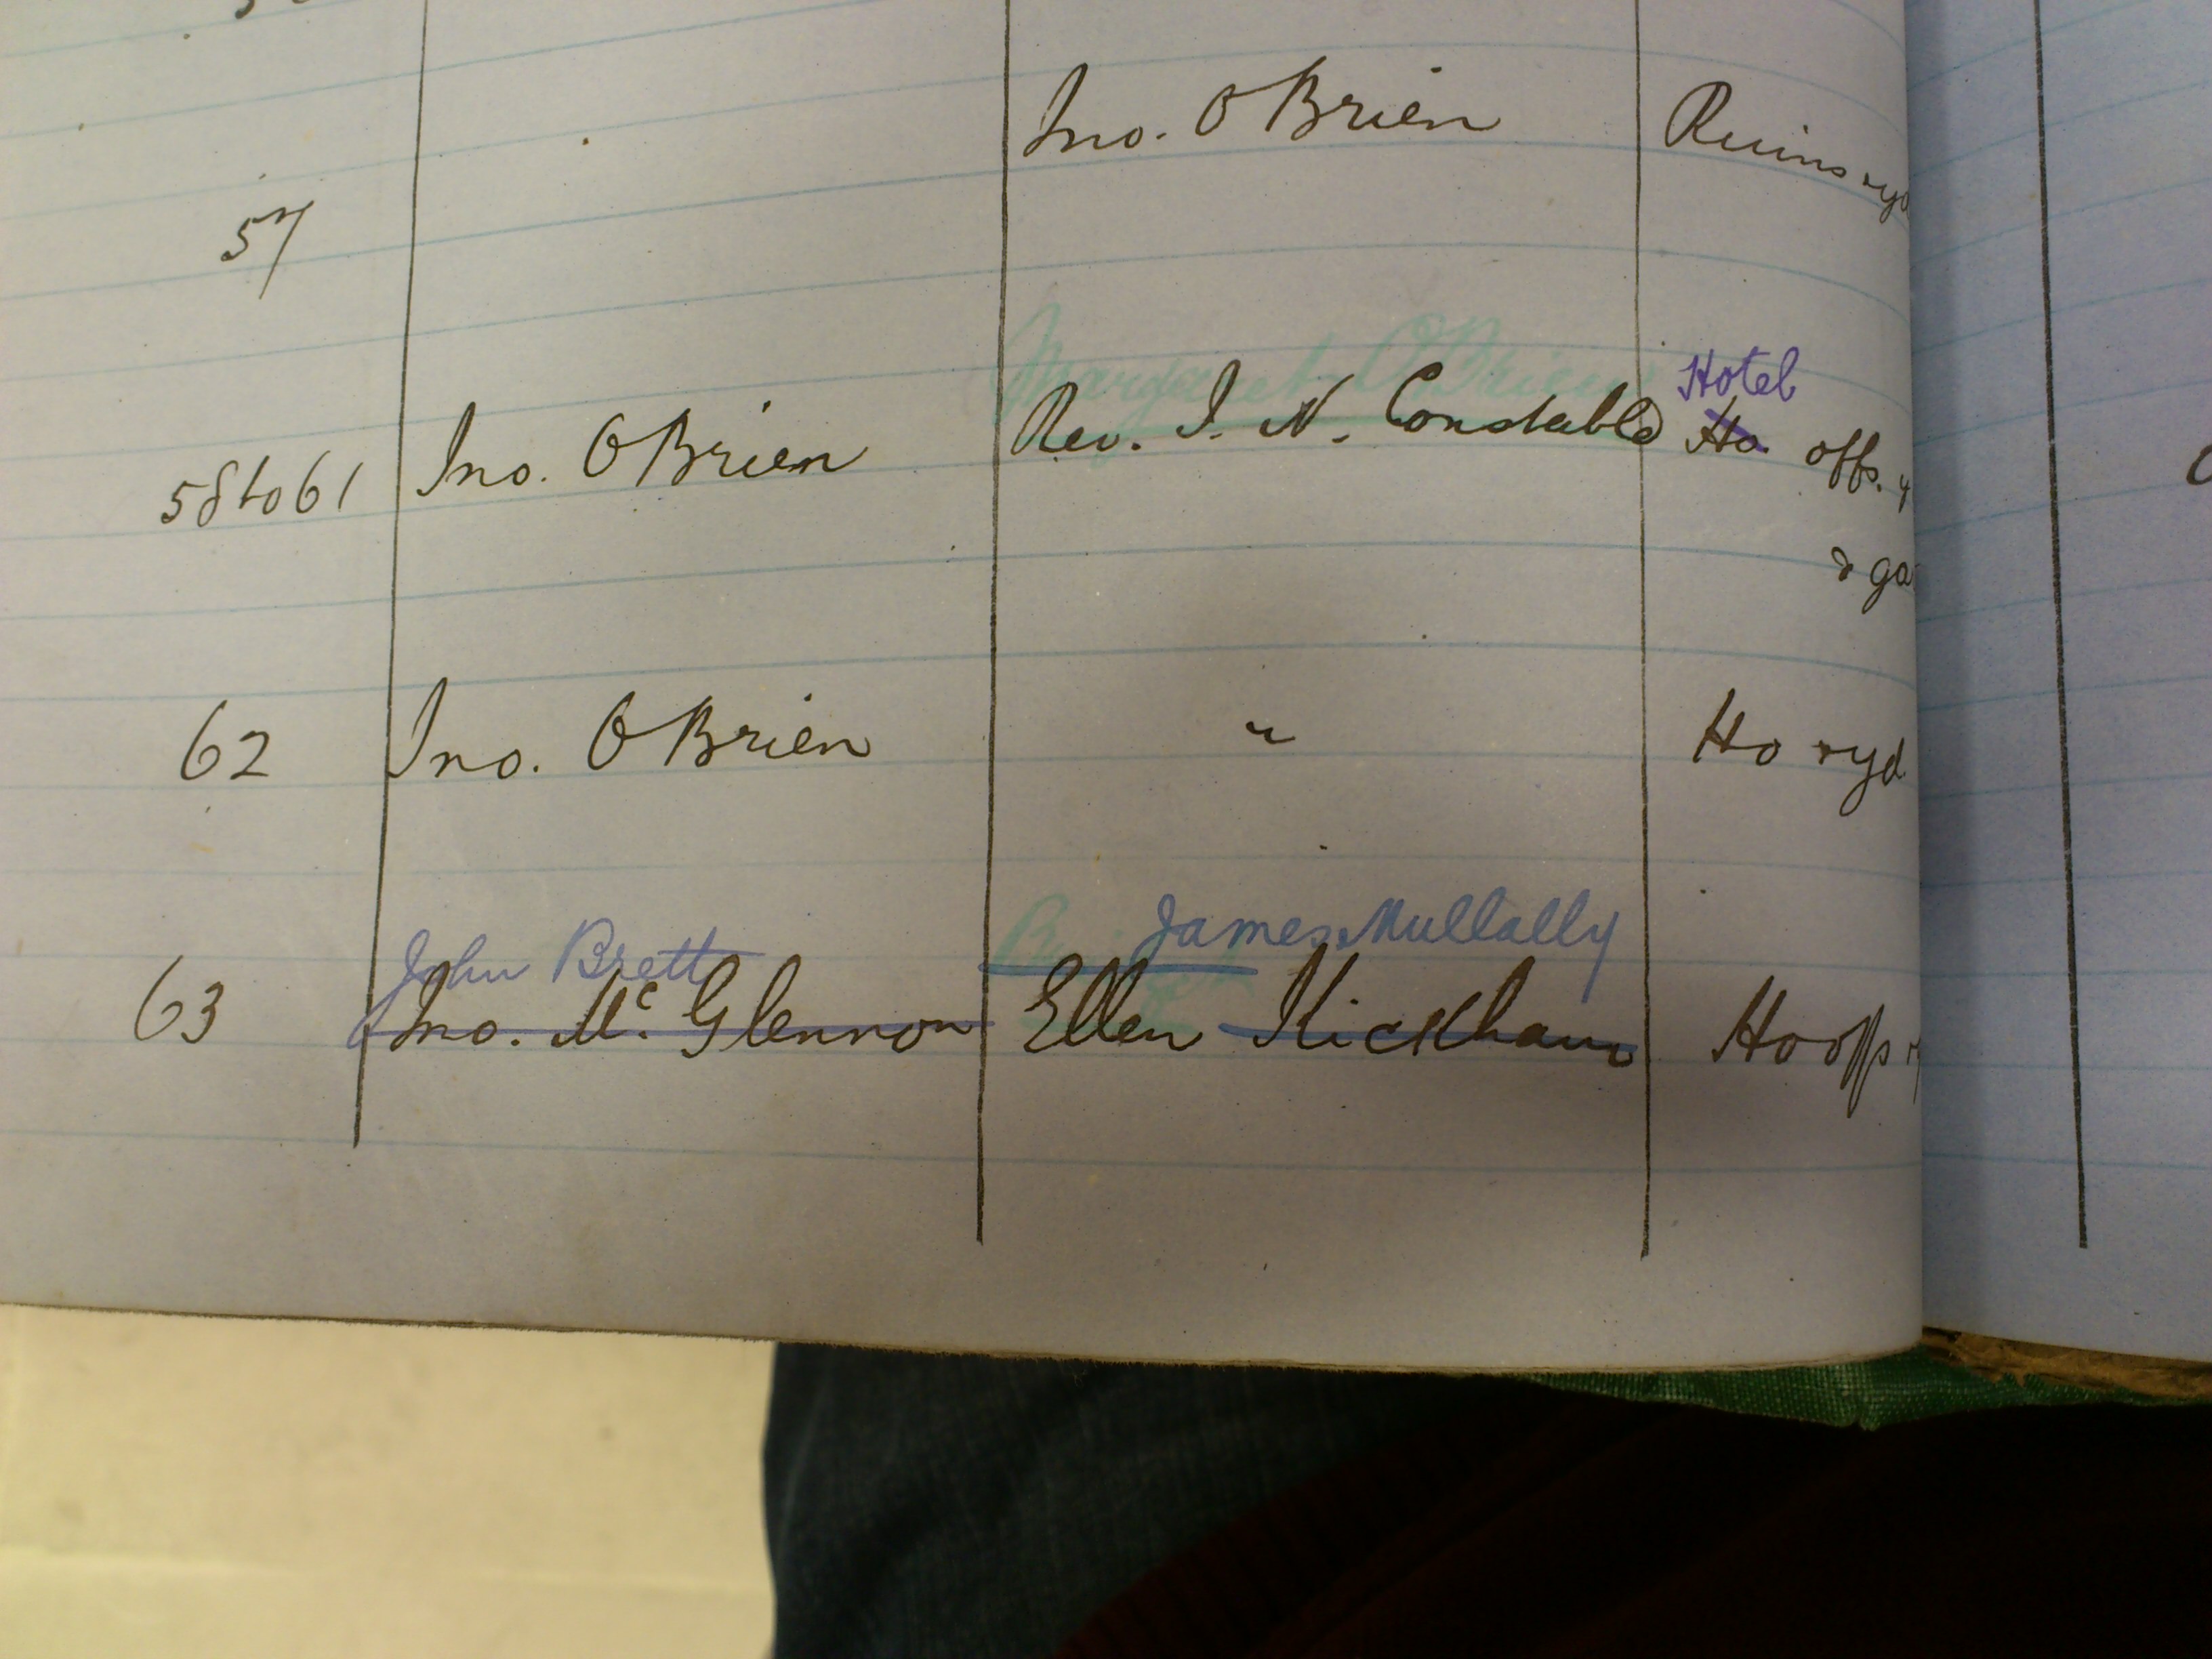 Jno. O'Brien Ruins & yd
57
Margaret O'Brien Hotel
58 to 61 Jno. O'Brien Rev. I. N. Constable Ho offs. &
& ga
62 Jno. O'Brien " Ho & yd
John Brett James Mullally
63 Jno. Mc Glennon Ellen Kickham Ho offs